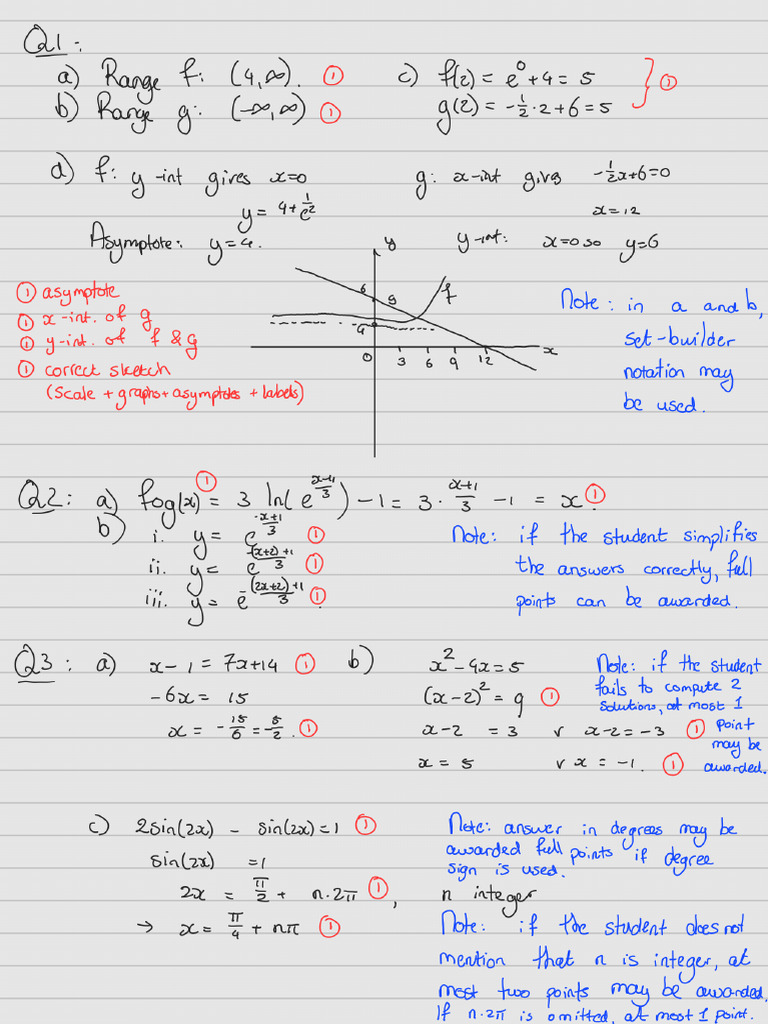 Q1:
a) Range f: (4,∞). ①
b) Range g: (-∞,∞) ①
c) f(2) = e^0 + 4 = 5
g(2) = -1/2·2+6 = 5 } ①
d) f: y-int gives x=0
y = 4+1/e^2
Asymptote: y=4.
g: x-int gives -1/2x+6=0
x=12
y-int: x=0 so y=6
① asymptote
① x-int. of g
① y-int. of f & g
① correct sketch
(Scale + graphs + asymptotes + labels)
y
6
g
f
4
0
3 6 9 12
x
Note: in a and b,
set-builder
notation may
be used.
Q2: a) fog(x) ① = 3 ln(e^((x+1)/3)) -1 = 3·(x+1)/3 -1 = x. ①
b) i. y = e^((-x+1)/3) ①
ii. y = e^((-(x+2)+1)/3) ①
iii. y = e^(-((2x+2)+1)/3). ①
Note: if the student simplifies
the answers correctly, full
points can be awarded.
Q3: a) x-1 = 7x+14 ①
-6x = 15
x = -15/6 = -5/2. ①
b) x^2-4x=5
(x-2)^2 = 9 ①
x-2 = 3 v x-2=-3 ①
x = 5 v x = -1. ①
Note: if the student
fails to compute 2
solutions, at most 1
point
may be
awarded.
c) 2sin(2x) - sin(2x)=1 ①
sin(2x) =1
2x = π/2 + n·2π ①, n integer
→ x= π/4 + nπ ①
Note: answer in degrees may be
awarded full points if degree
sign is used.
Note: if the student does not
mention that n is integer, at
most two points may be awarded.
If n·2π is omitted, at most 1 point.